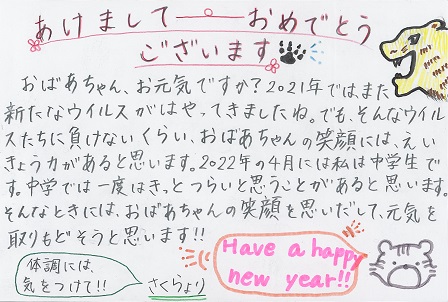 あけまして おめでとう
ございます
おばあちゃん、お元気ですか？2021年では、また
新たなウイルスがはやってきましたね。でも、そんなウイル
スたちに負けないくらい、おばあちゃんの笑顔には、えい
きょう力があると思います。2022年の4月には私は中学生で
す。中学では一度はきっとつらいと思うことがあると思います。
そんなときには、おばあちゃんの笑顔を思いだして、元気を
取りもどそうと思います!!
Have a happy
new year!!
体調には、
気をつけて!!
さくらより